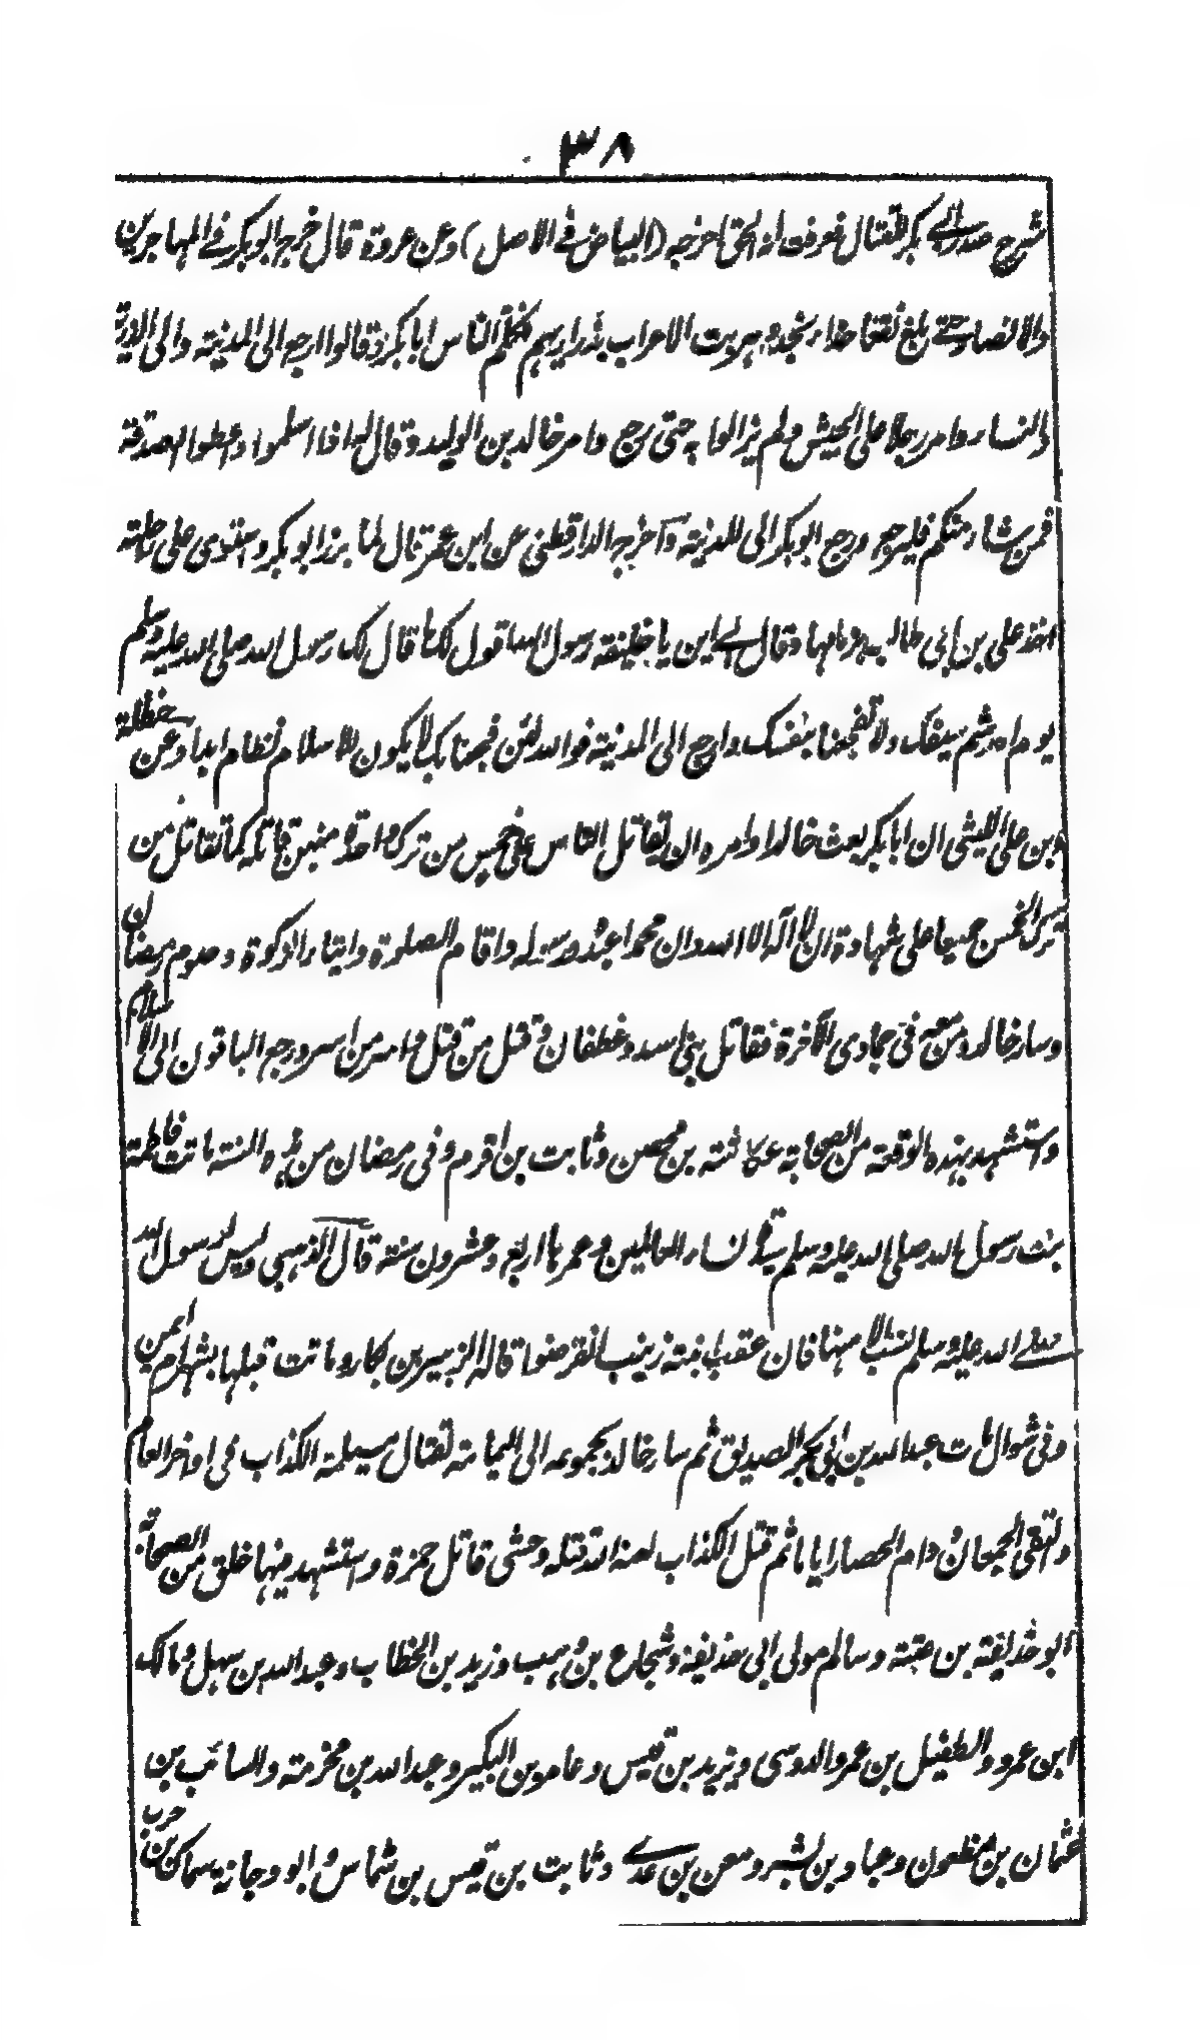 ٣٨
شرح صدر ابي بكر للقتال فعرفت انه الحق اخرجه (البياض في الاصل) وعن عروة قال خرج ابو بكر في المهاجرين
والانصار حتى بلغ نقعا حذاء نجد وهربت الاعراب بذراريهم فكلم الناس ابا بكر وقالوا ارجع الى المدينة والى الذرية
والنساء وامر رجلا على الجيش ولم يزالوا به حتى رجع وامر خالد بن الوليد وقال له اذا اسلموا واعطوا الصدقة
فمن شاء منكم فليرجع ورجع ابو بكر الى المدينة وآخرج الدارقطنى عن ابن عمر قال لما برز ابو بكر واستوى على راحلته
اخذ على بن ابى طالب بزمامها وقال الى اين يا خليفة رسول الله اقول لك ما قال لك رسول الله صلى الله عليه وسلم
يوم احد شم سيفك ولا تفجعنا بنفسك وارجع الى المدينة فوالله لئن فجعنا بك لا يكون للاسلام نظام ابدا وعن حنظلة
بن على الليثى ان ابا بكر بعث خالدا وامره ان يقاتل الناس على خمس من ترك واحدة منهن قاتله كما تقاتل من
ترك الخمس جميعا على شهادة ان لا اله الا الله وان محمدا عبده ورسوله واقام الصلوة وايتاء الزكوة وصوم رمضان
وسار خالد ومن معه فى جمادى الآخرة فقاتل بنى اسد وغطفان وقتل من قتل واسر من اسر ورجع الباقون الى الاسلام
واستشهد بهذه الوقعة من الصحابة عكاشة بن محصن وثابت بن اقرم وفى رمضان من هذه السنة ماتت فاطمة
بنت رسول الله صلى الله عليه وسلم سيدة نساء العالمين وعمرها اربع وعشرون سنة قال الذهبى وليس لرسول الله
صلى الله عليه وسلم نسب الا منها فان عقب ابنته زينب انقرضوا قاله الزبير بن بكار وماتت قبلها بشهر ام ايمن
وفى شوال مات عبد الله بن ابى بكر الصديق ثم سار خالد بجموعه الى اليمامة لقتال مسيلمة الكذاب فى اواخر العام
والتقى الجمعان ودام الحصار اياما ثم قتل الكذاب لعنه الله قتله وحشى قاتل حمزة واستشهد فيها خلق من الصحابة
ابو حذيفة بن عتبة وسالم مولى ابى حذيفة وشجاع بن وهب وزيد بن الخطاب وعبد الله بن سهل ومالك
ابن عمرو والطفيل بن عمرو الدوسى ويزيد بن قيس وعامر بن البكير وعبد الله بن مخرمة والسائب بن
عثمان بن مظعون وعباد بن بشر ومعن بن عدى وثابت بن قيس بن شماس وابو دجانة سماك بن حرب